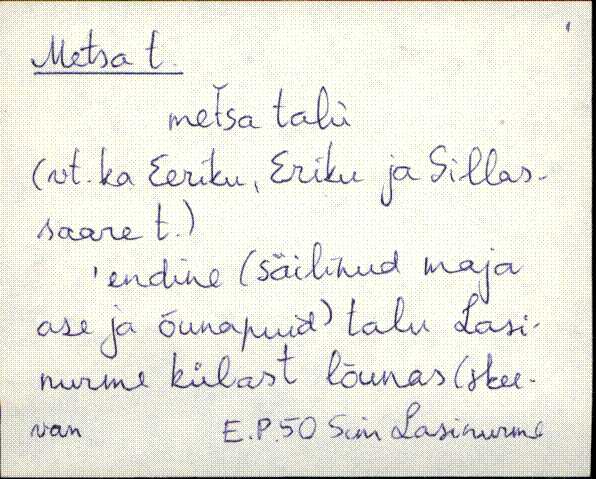 Metsa t.
metsa talu
(vt. ka Eeriku, Eriku ja Sillas-
saare t.)
'endine (säilinud maja
ase ja õunapuid) talu Lasi-
nurme külast lõunas (skee-
van E.P.50 Sim Lasinurme